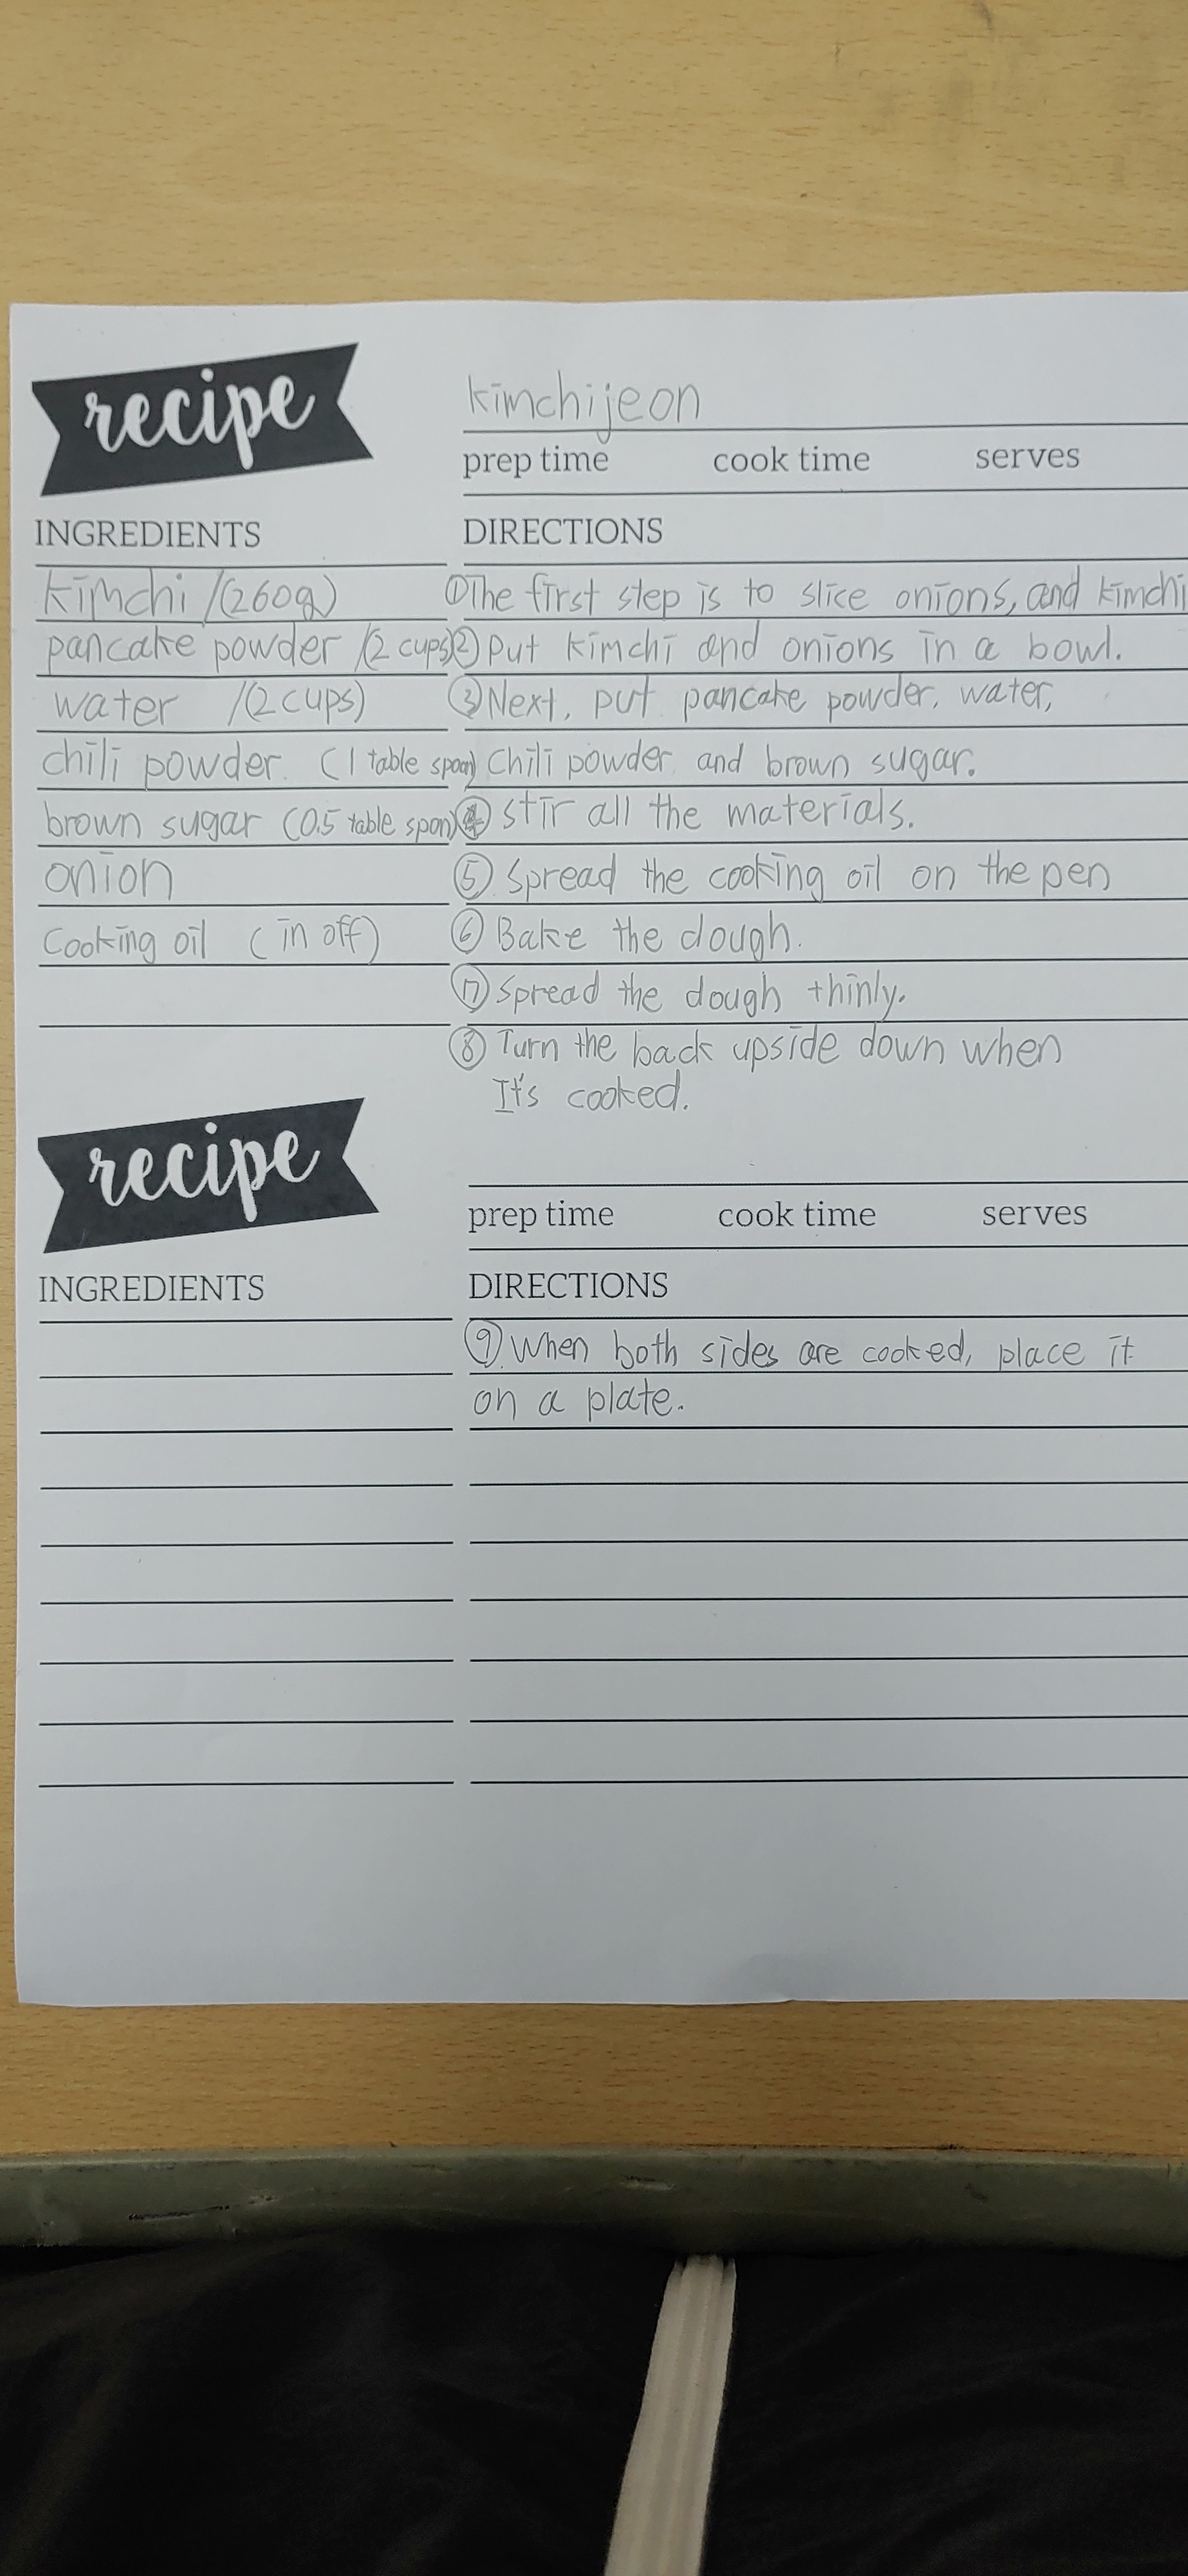 recipe
kimchijeon
prep time cook time serves
INGREDIENTS
kimchi /(260g)
pancake powder /(2 cups)
water /(2 cups)
chili powder. (1 table spoon)
brown sugar (0.5 table spon)
onion
Cooking oil (in off)
DIRECTIONS
①The first step is to slice onions, and kimchi
② Put kimchi and onions in a bowl.
③ Next, put pancake powder, water,
chili powder and brown sugar.
④ stir all the materials.
⑤ Spread the cooking oil on the pen
⑥ Bake the dough.
⑦ Spread the dough thinly.
⑧ Turn the back upside down when
It's cooked.
recipe
prep time cook time serves
INGREDIENTS
DIRECTIONS
⑨ When both sides are cooked, place it
on a plate.